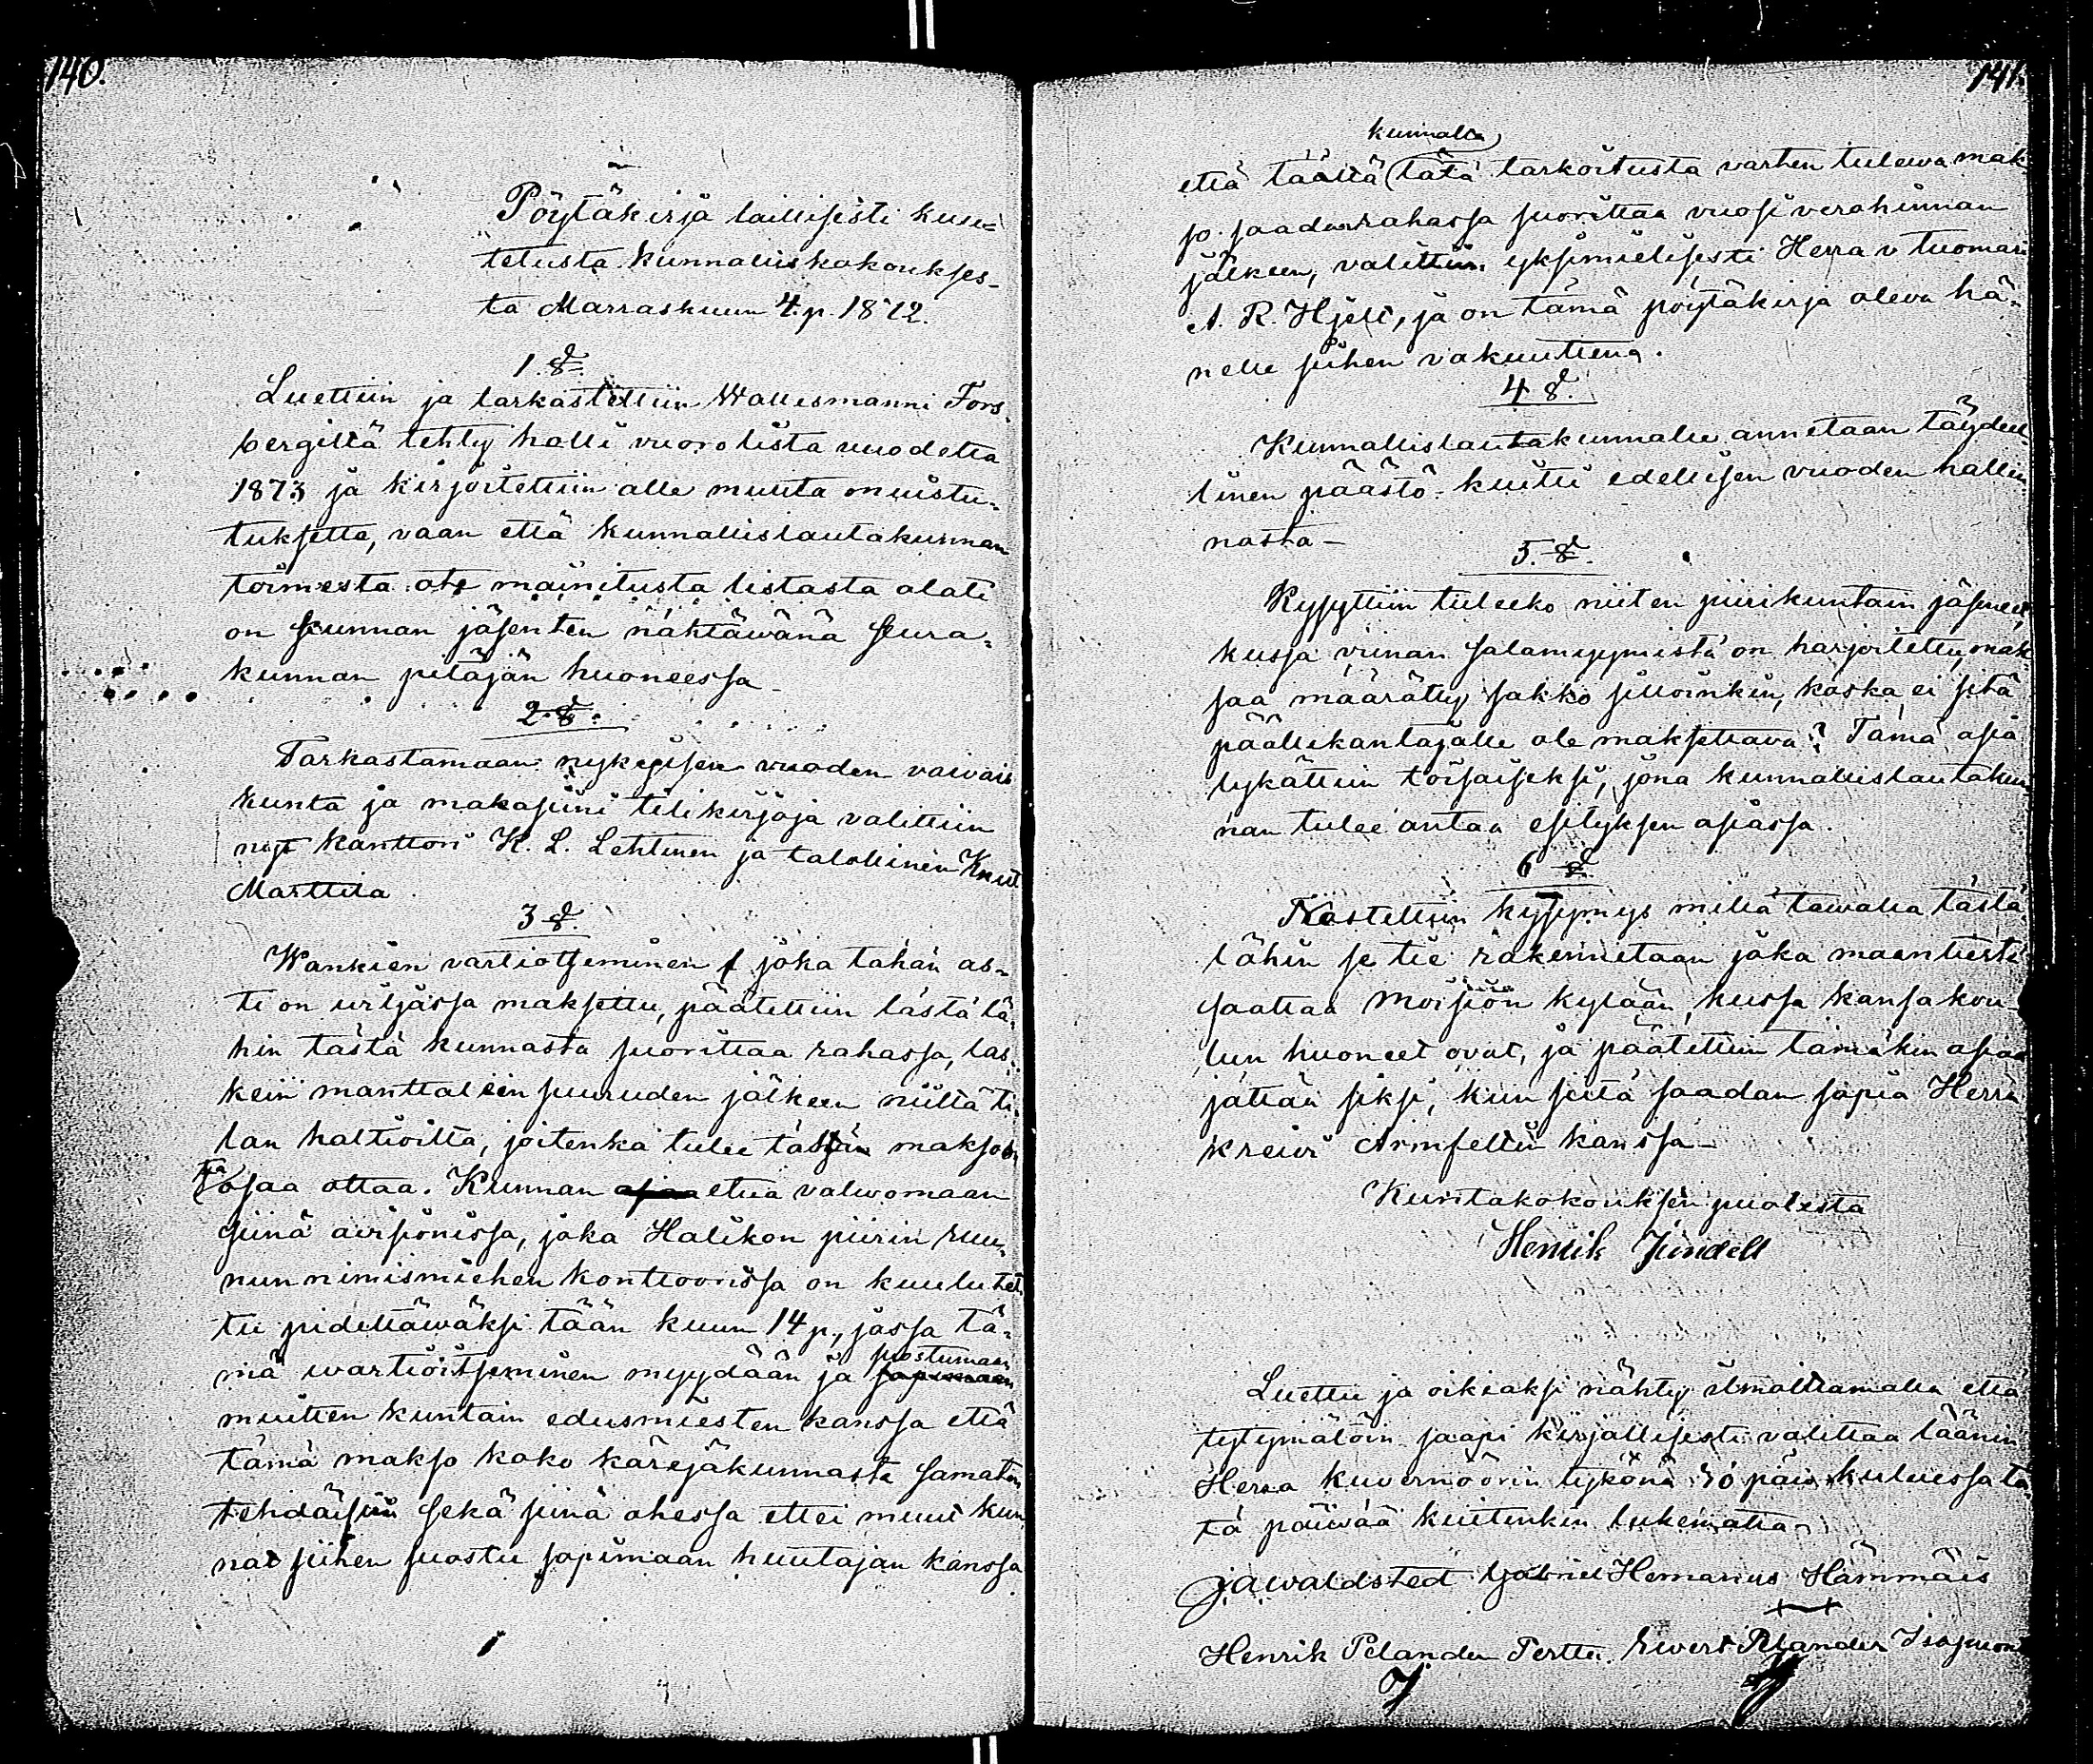 140.
Pöytäkirja laillisesti kuulu=
tetusta kunnalliskokoukses-
ta Marraskuun 4. p. 1872.
1. §.
Luettiin ja tarkastettiin Wallesmanni Fors-
bergiltä tehty halli vuoro lista vuodelta
1873 ja kirjoitettiin alle muuta muistu-
tuksetta, vaan että kunnallislautakunnan
toimesta ote mainitusta listasta alati
on kunnan jäsenten nähtäwänä seura-
kunnan pitäjän huoneessa.
2. §.
Tarkastamaan nykyisen vuoden vaivais
kunta ja makasiini tilikirjoja valittiin
nyt kanttori K. L. Lehtinen ja talollinen Knut
Marttila
3 §.
Wankien vartiotseminen joka tähän as-
ti on urtjassa maksettu, päätettiin tästä lä-
hin tästä kunnasta suorittaa rahassa, las-
kein manttalein suuruden jälkeen niiltä ti-
lan haltioilta, joitenka tulee tähän makson
ta osaa ottaa. Kunnan etua valwomaan
siinä airsionissa, joka Halikon piirin ruu-
nun nimismiehen konttoorissa on kuulutet-
tu pidettäwäksi tään kuun 14 p., jossa tä-
mä wartioitseminen myydään ja suostumaan
muitten kuntain edusmiesten kanssa että
tämä makso koko käräjäkunnasta samaten
tehdäisiin sekä siinä ohessa ettei muut kun-
nat siihen suostu sopimaan huutajan kanssa
141.
kunnalta
että täältä tätä tarkoitusta varten tulewa mak
so saadaan rahassa suorittaa vuosi verohinnan
jälkeen, valittiin yksimielisesti Herra v tuomari
A. R. Hjelt, ja on tämä pöytäkirja olewa hä-
nelle siihen vakuuttena.
4 §.
Kunnallislautakunnalle annetaan täydel-
linen päästö-kuitti edellisen vuoden hallin
nosta –
5. §.
Kysyttiin tuleeko niiten piirikuntain jäsenet,
kussa viinan salamyymistä on harjoitettu, mak-
saa määrätty sakko silloinkin, koska ei sitä
päällekantajalle ole maksettava? Tämä asia
lykättiin toisaiseksi, jona kunnallislautakun
nan tulee antaa esityksen asiassa.
6 §
Nostettiin kysymys millä tawalla tästä
lähin se tie rakennetaan joka maantiestä
saattaa Moision kylään, kussa kansakou-
lun huoneet ovat, ja päätettiin tämäkin asia
jättää siksi, kun siitä saadan sopia Herra
kreiwi Armfeltin kanssa –
Kuntakokouksen puolesta
Henrik Jündell
Luettu ja oikeaksi nähty ilmoittamalla että
tytymätöin saapi kirjallisesti valittaa läänin
Herra kuvernöörin tykönä 30 päiw. kuluessa tä-
tä päiwää kuitenkin lukematta
J. A Waldsted Gabriel Hemanus Hämmäis
Henrik Pelander Perttu. Ewert Pelander Isosuon